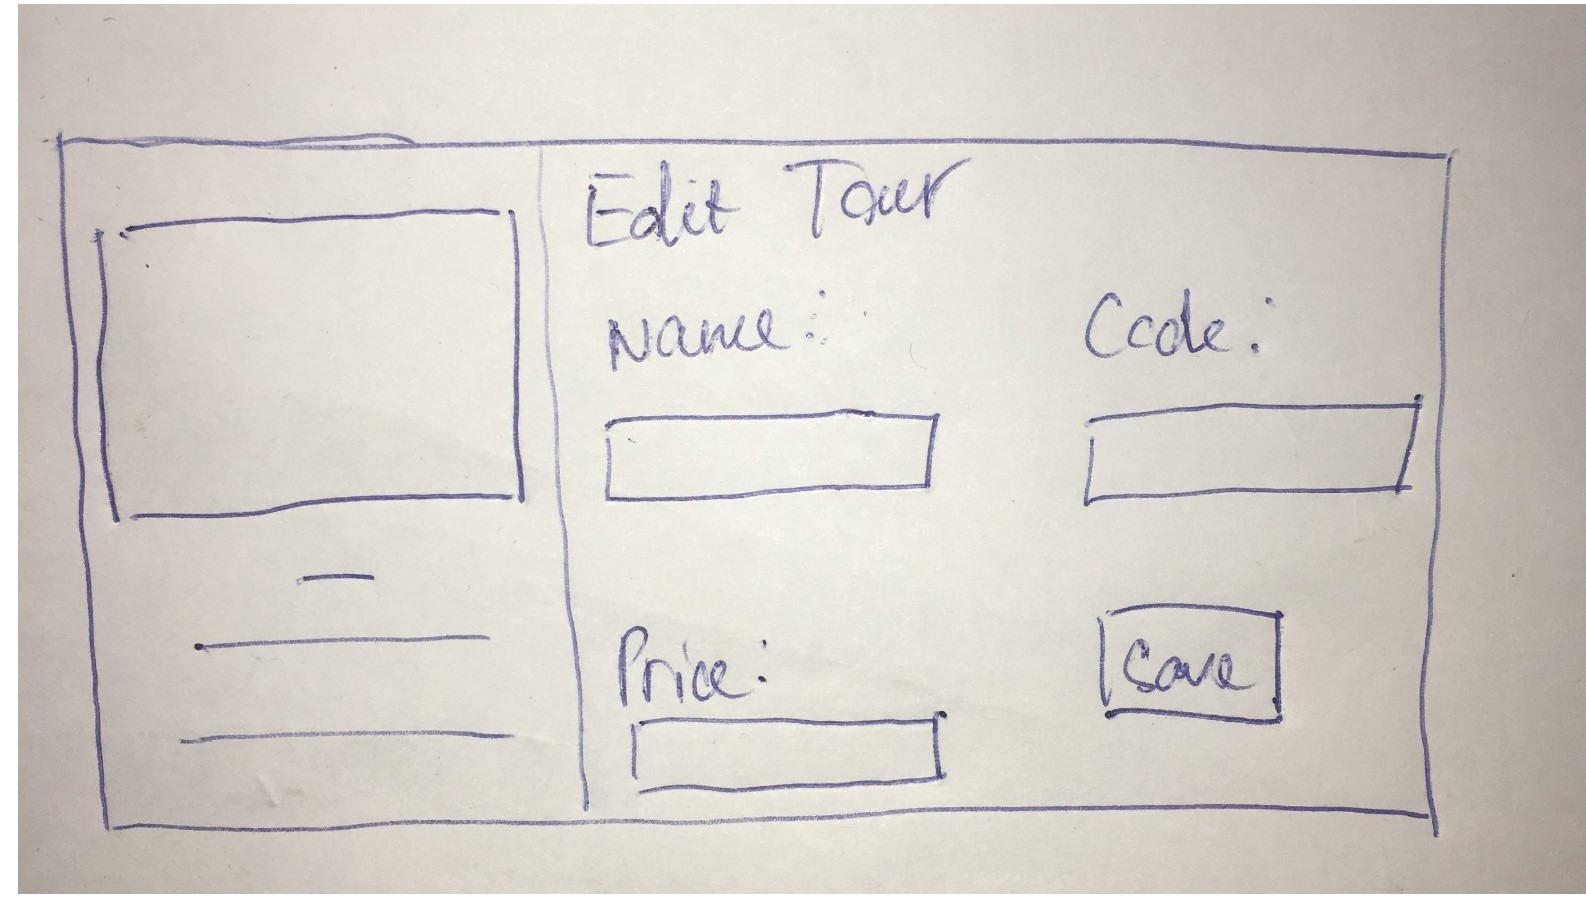 Edit Tour
Name:
Code:
Price:
Save